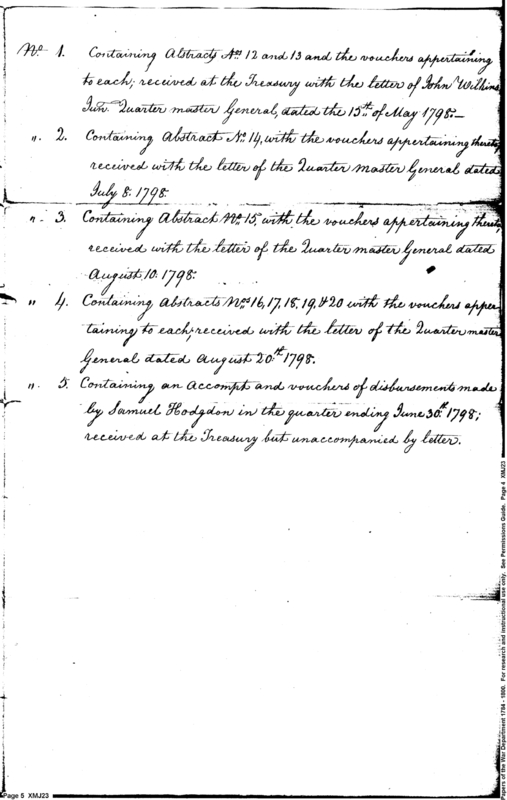 No. 1. Containing Abstracts Nos. 12 and 13 and the vouchers appertaining
to each; received at the Treasury with the letter of John Wilkins
Junr. Quarter master General, dated the 15th of May 1798.—
". 2. Containing Abstract No. 14, with the vouchers appertaining thereto,
received with the letter of the Quarter Master General dated
July 8. 1798.
". 3. Containing Abstract No. 15, with the vouchers appertaining thereto,
received with the letter of the Quarter master General dated
August. 10. 1798.
" 4. Containing Abstracts Nos. 16, 17. 18. 19. & 20 with the vouchers apper-
taining to each; received with the letter of the Quarter master
General dated August 20th. 1798.
". 5. Containing an Accompt and vouchers of disbursements made
by Samuel Hodgdon in the quarter ending June 30th. 1798;
received at the Treasury but unaccompanied by letter.
Page 5 XMJ23
Papers of the War Department 1784 - 1800. For research and instructional use only. See Permissions Guide. Page 4 XMJ23